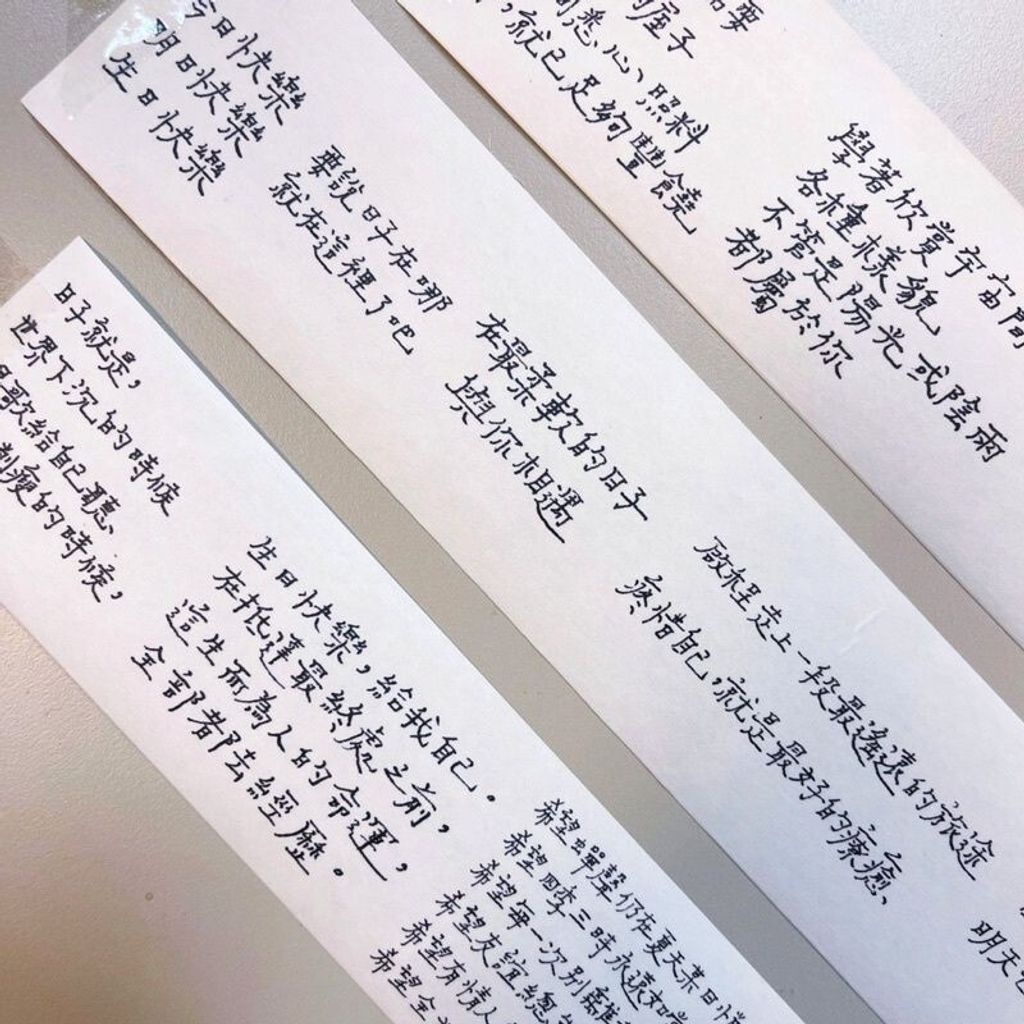 今日快樂
明日快樂
生日快樂
要說日子在哪
就在這裡了吧
在最柔軟的日子
與你相遇
啟程走上一段最遙遠的旅途
疼惜自己,就是最好的療癒、
明天
需要
的座子
悉心、照料
,就已足夠豐饒
學著欣賞宇宙間
各種樣貌
不管是陽光或陰雨
都屬於你
日子就是,
世界下沉的時候
歌給自己聽
瘦的時候,
生日快樂,給我自己。
在抵達最終處之前,
這生而為人的命運,
全部都去經歷。
希望蟬聲仍在夏天某日
希望四季三時永遠如常
希望每一次別離
希望友誼總
希望有情人
希望全